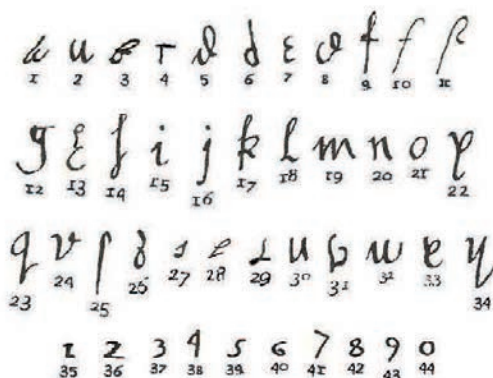 a u r d ε f f
1 2 3 4 5 6 7 8 9 10 11
g i j k l m n o p
12 13 14 15 16 17 18 19 20 21 22
q v ſ s u w y
23 24 25 26 27 28 29 30 31 32 33 34
1 2 3 4 5 6 7 8 9 0
35 36 37 38 39 40 41 42 43 44